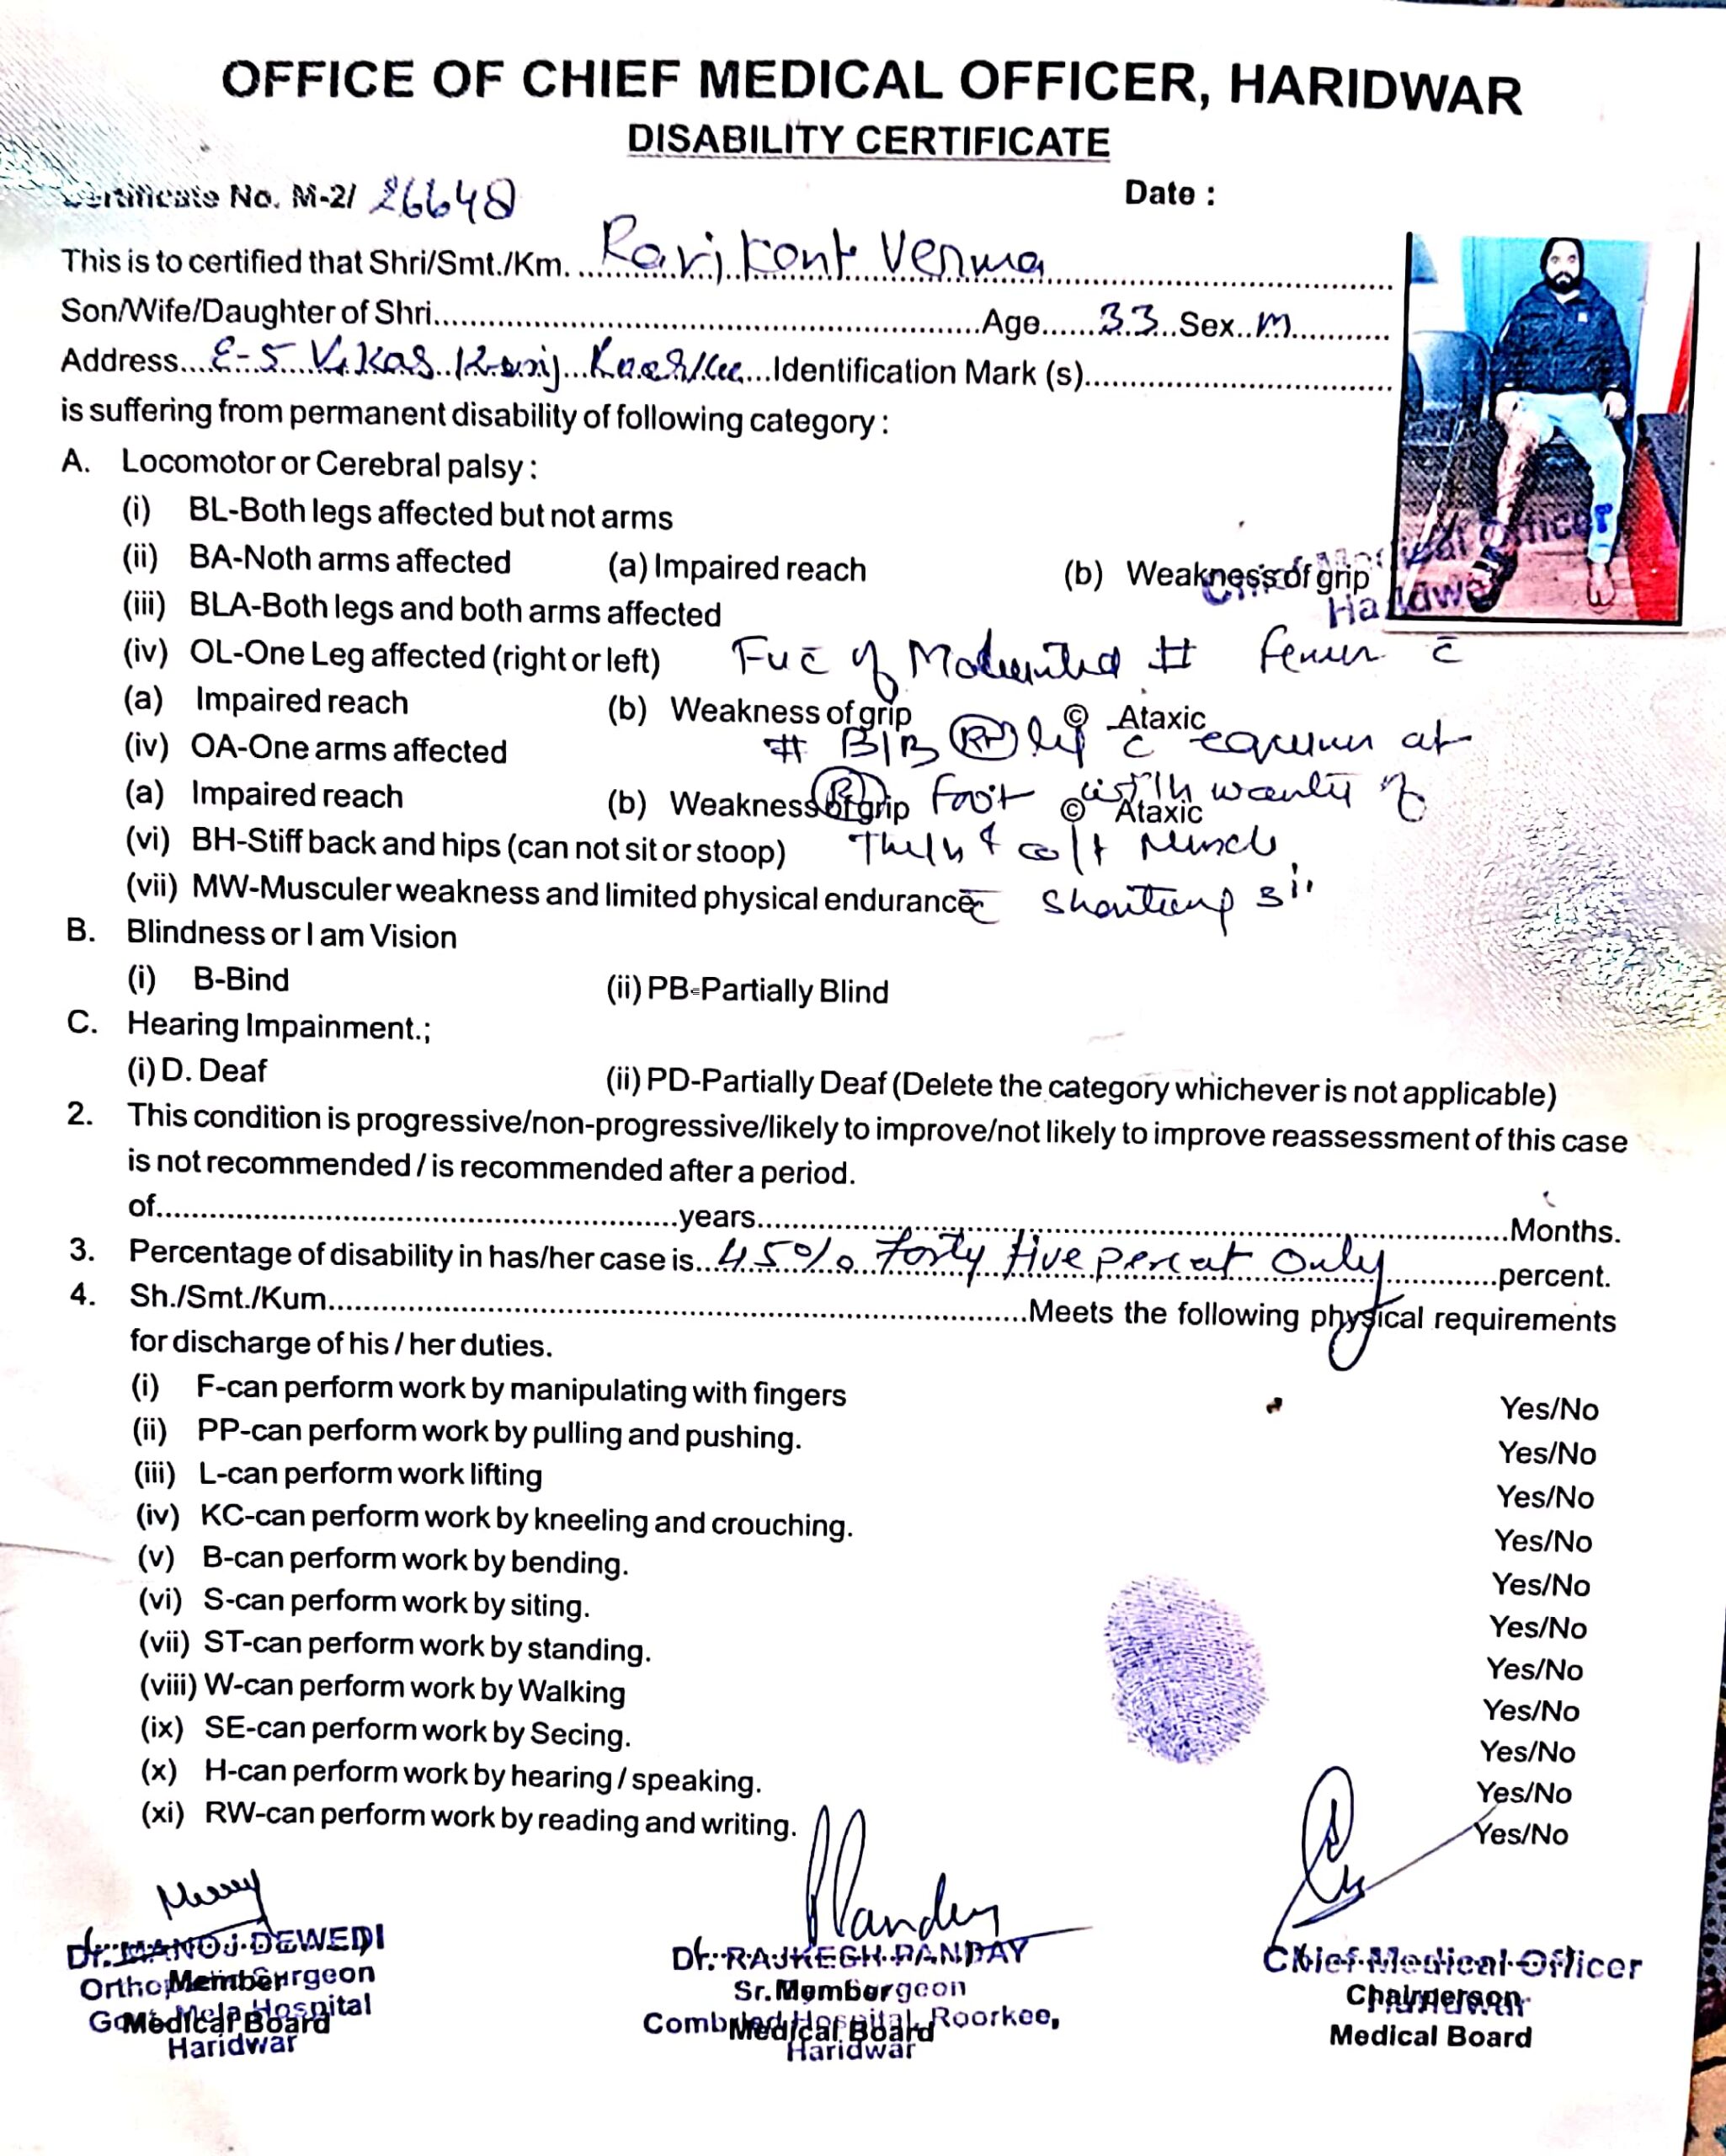 OFFICE OF CHIEF MEDICAL OFFICER, HARIDWAR
DISABILITY CERTIFICATE
Certificate No. M-2/ 26648
Date :
This is to certified that Shri/Smt./Km. Ravi Kant Verma
Son/Wife/Daughter of Shri Age 33 Sex M
Address E-5 Vikas Kunj Roorkee Identification Mark (s)
is suffering from permanent disability of following category :
A. Locomotor or Cerebral palsy :
(i) BL-Both legs affected but not arms
(ii) BA-Noth arms affected (a) Impaired reach (b) Weakness of grip
(iii) BLA-Both legs and both arms affected
(iv) OL-One Leg affected (right or left) of # femur c̄
(a) Impaired reach (b) Weakness of grip © Ataxic
# B/B Rt leg c̄ at
(iv) OA-One arms affected
(a) Impaired reach (b) Weakness of grip © Ataxic
Foot with of
(vi) BH-Stiff back and hips (can not sit or stoop)
(vii) MW-Musculer weakness and limited physical endurance c̄
B. Blindness or I am Vision
(i) B-Bind (ii) PB-Partially Blind
C. Hearing Impainment.;
(i) D. Deaf (ii) PD-Partially Deaf (Delete the category whichever is not applicable)
2. This condition is progressive/non-progressive/likely to improve/not likely to improve reassessment of this case
is not recommended / is recommended after a period.
of years Months.
3. Percentage of disability in has/her case is 45% Forty five percent Only percent.
4. Sh./Smt./Kum. Meets the following physical requirements
for discharge of his / her duties.
(i) F-can perform work by manipulating with fingers Yes/No
(ii) PP-can perform work by pulling and pushing. Yes/No
(iii) L-can perform work lifting Yes/No
(iv) KC-can perform work by kneeling and crouching. Yes/No
(v) B-can perform work by bending. Yes/No
(vi) S-can perform work by siting. Yes/No
(vii) ST-can perform work by standing. Yes/No
(viii) W-can perform work by Walking Yes/No
(ix) SE-can perform work by Secing. Yes/No
(x) H-can perform work by hearing / speaking. Yes/No
(xi) RW-can perform work by reading and writing. Yes/No
Dr. MANOJ DEWEDI
Member
Medical Board
Haridwar
Dr. RAJKESH PANDAY
Sr. Member
Roorkee,
Medical Board
Haridwar
Chief Medical Officer
Chairperson
Medical Board